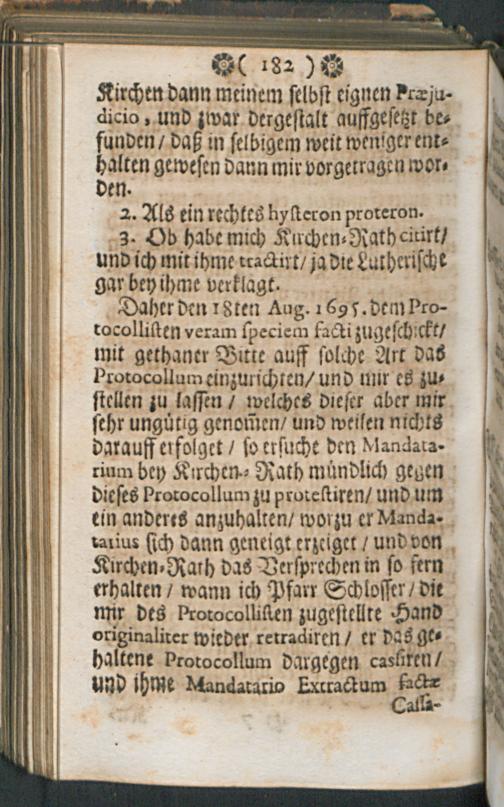 ( 182 )
Kirchen dann meinem selbst eignen Præju-
dicio, und zwar dergestalt auffgesetzt be-
funden / daß in selbigem weit weniger ent-
halten gewesen dann mir vorgetragen wor-
den.
2. Als ein rechtes hysteron proteron.
3. Ob habe mich Kirchen-Rath citirt/
und ich mit ihme tractirt/ ja die Lutherische
gar bey ihme verklagt.
Daher den 18ten Aug. 1695. dem Pro-
tocollisten veram speciem facti zugeschickt/
mit gethaner Bitte auff solche Art das
Protocollum einzurichten/ und mir es zu-
stellen zu lassen / welches dieser aber mir
sehr ungütig genom̃en/ und weilen nichts
darauff erfolget / so ersuche den Mandata-
rium bey Kirchen-Rath mündlich gegen
dieses Protocollum zu protestiren/ und um
ein anderes anzuhalten/ worzu er Manda-
tarius sich dann geneigt erzeiget / und von
Kirchen-Rath das Versprechen in so fern
erhalten / wann ich Pfarr Schlosser / die
mir des Protocollisten zugestellte Hand
originaliter wieder retradiren / er das ge-
haltene Protocollum dargegen cassiren /
und ihme Mandatario Extractum factæ
Cassa-